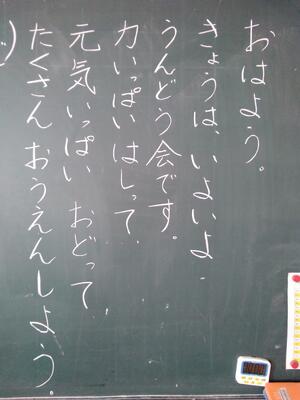 おはよう。
きょうは、いよいよ
うんどう会です。
力いっぱいはしって
元気いっぱい おどって
たくさん おうえんしよう。